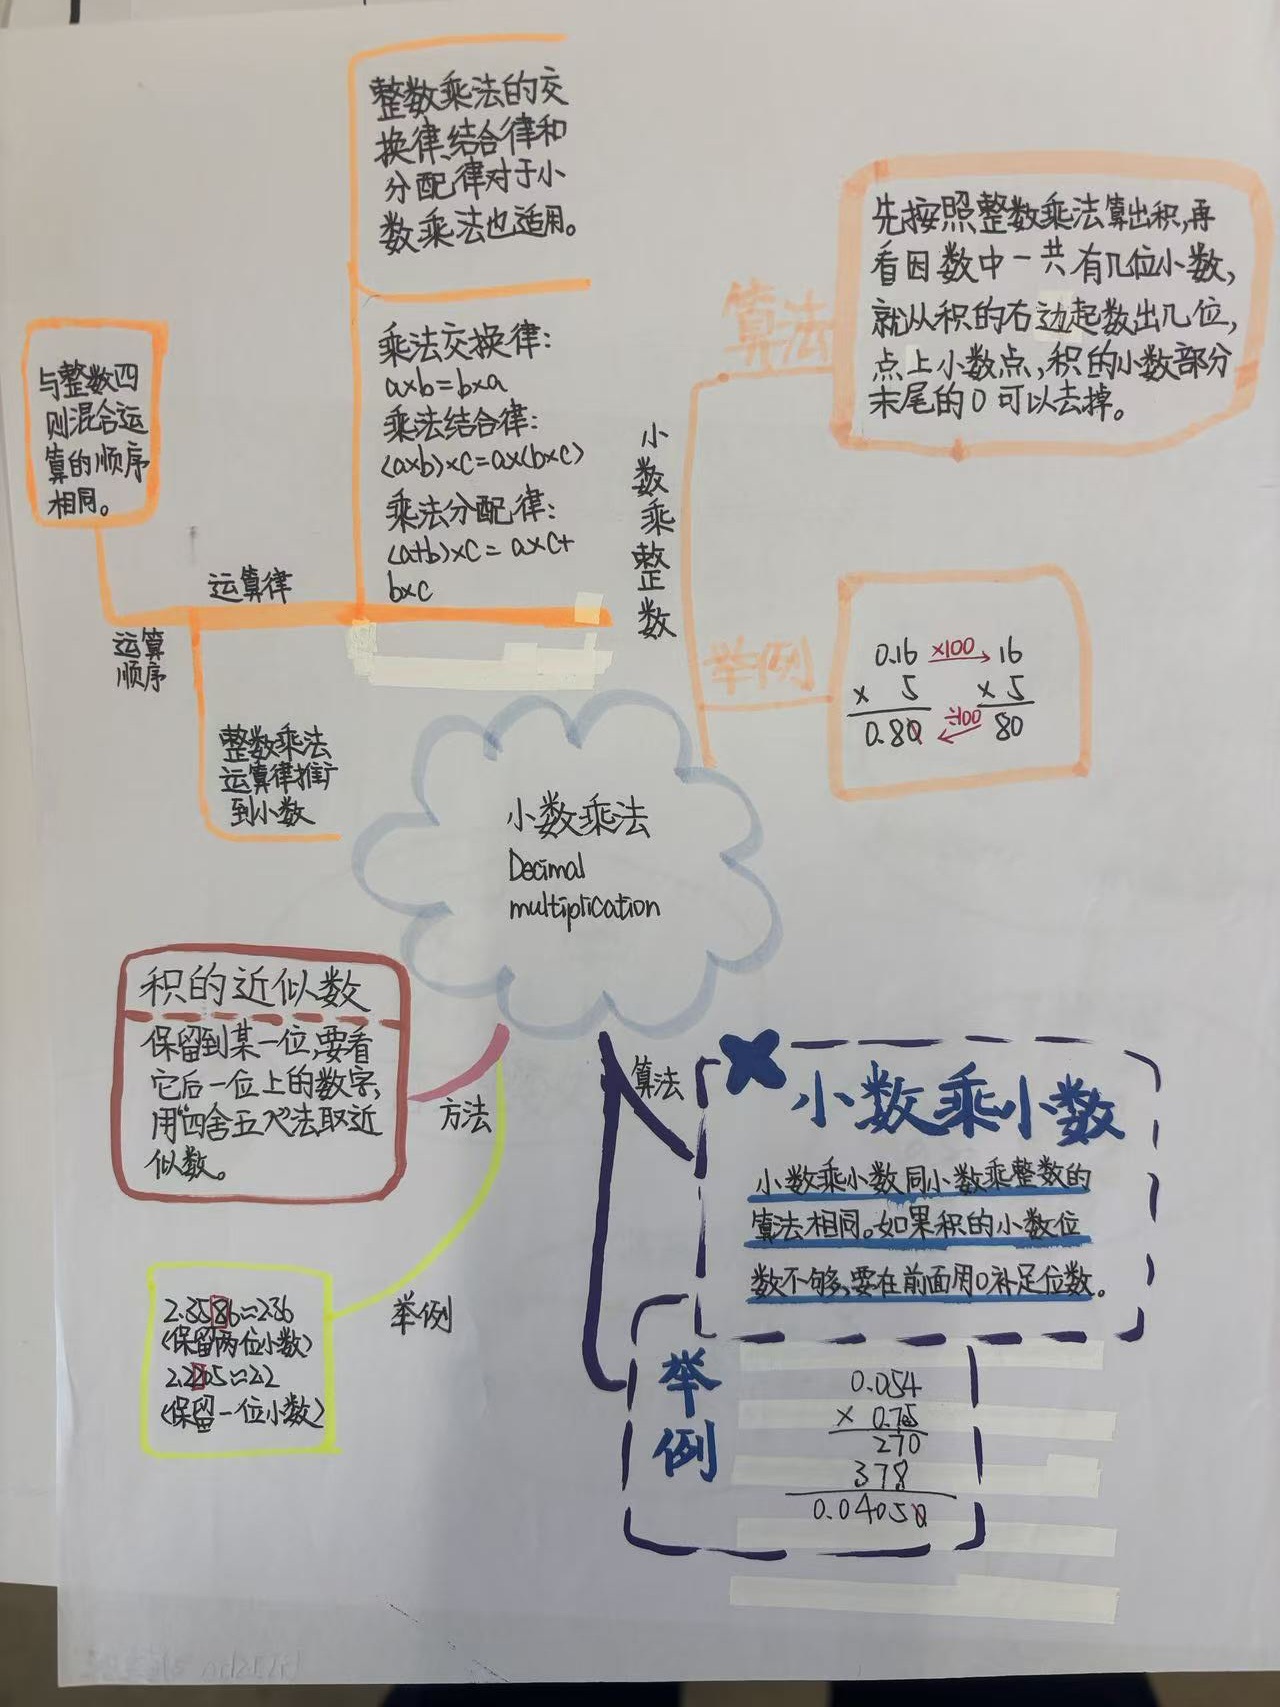 整数乘法的交
换律、结合律和
分配律对于小
数乘法也适用。
乘法交换律:
a×b=b×a
乘法结合律:
(a×b)×c=a×(b×c)
乘法分配律:
(a+b)×c=a×c+
b×c
与整数四
则混合运
算的顺序
相同。
运算律
运算
顺序
整数乘法
运算律推广
到小数
小数乘整数
算法
先按照整数乘法算出积,再
看因数中一共有几位小数,
就从积的右边起数出几位,
点上小数点,积的小数部分
末尾的0可以去掉。
举例
0.16 ×100 16
× 5 × 5
0.80 ÷100 80
小数乘法
Decimal
multiplication
积的近似数
保留到某一位,要看
它后一位上的数字,
用"四舍五入"法取近
似数。
方法
举例
2.3586≈2.36
(保留两位小数)
2.2205≈2.2
(保留一位小数)
算法
小数乘小数
小数乘小数同小数乘整数的
算法相同。如果积的小数位
数不够,要在前面用0补足位数。
举
例
0.054
× 0.75
270
378
0.04050